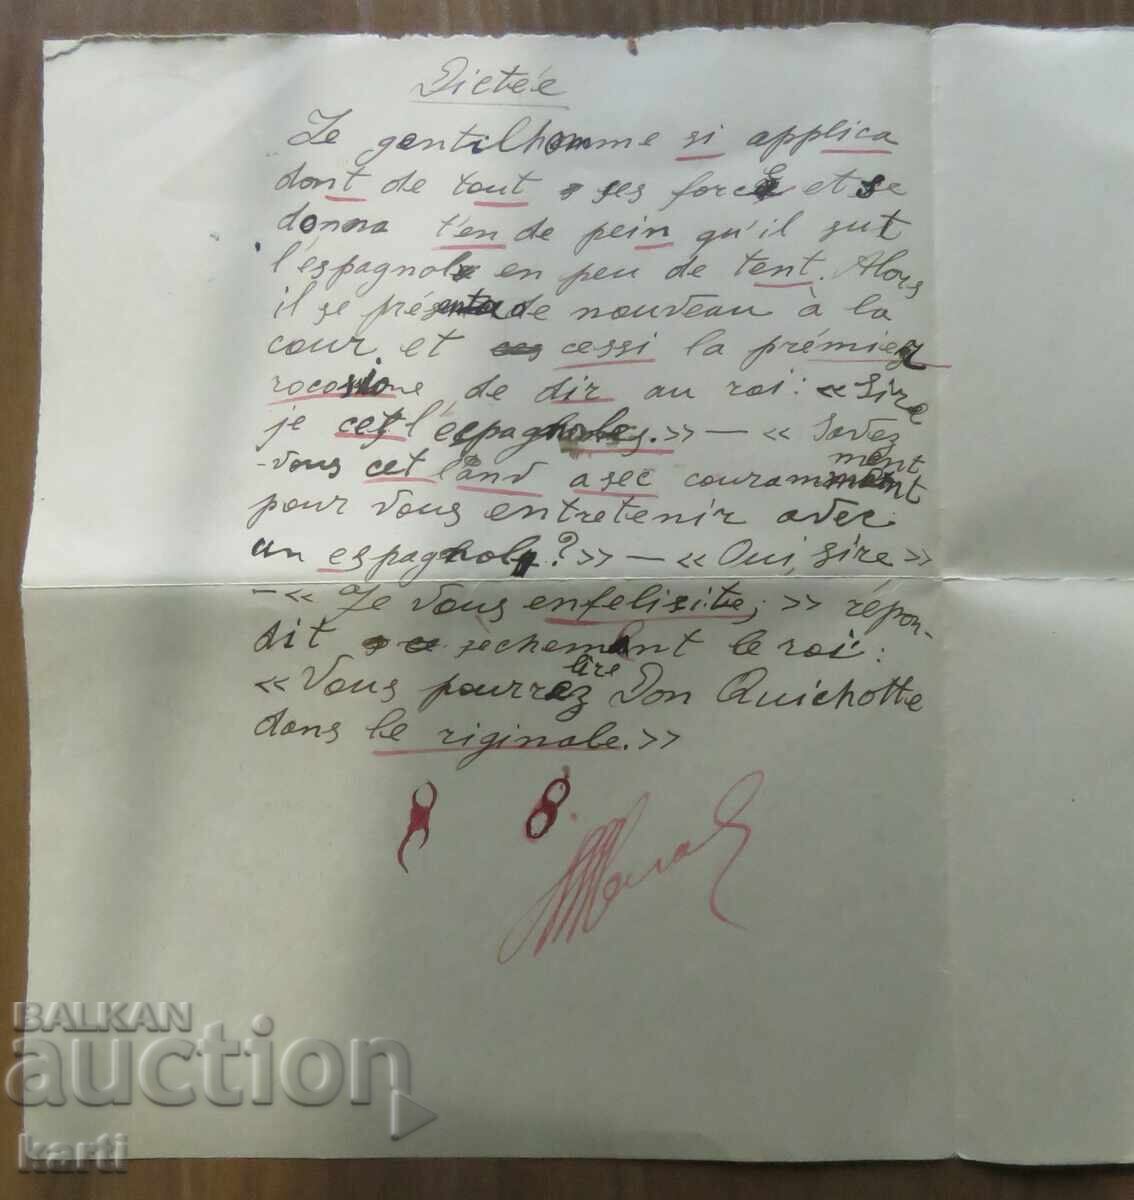 Dictée
Le gentilhomme si applica
dont de tout ses force et se
donna t'en de pein qu'il sut
l'espagnol en peu de tent. Alors
il se présenta de nouveau à la
cour et cessi la prémier
rocosione de dir au roi: «Sire
je cet l'espagnoles.» — «Savez
-vous cet land asec couramment
pour vous entretenir avec
un espagnol?» — «Oui, sire»
-«Je vous enfelisite;» répon-
dit sechement le roi:
«Vous pourrez lire Don Quichotte
dans le riginale.»
8 8
BALKAN
auction
karti